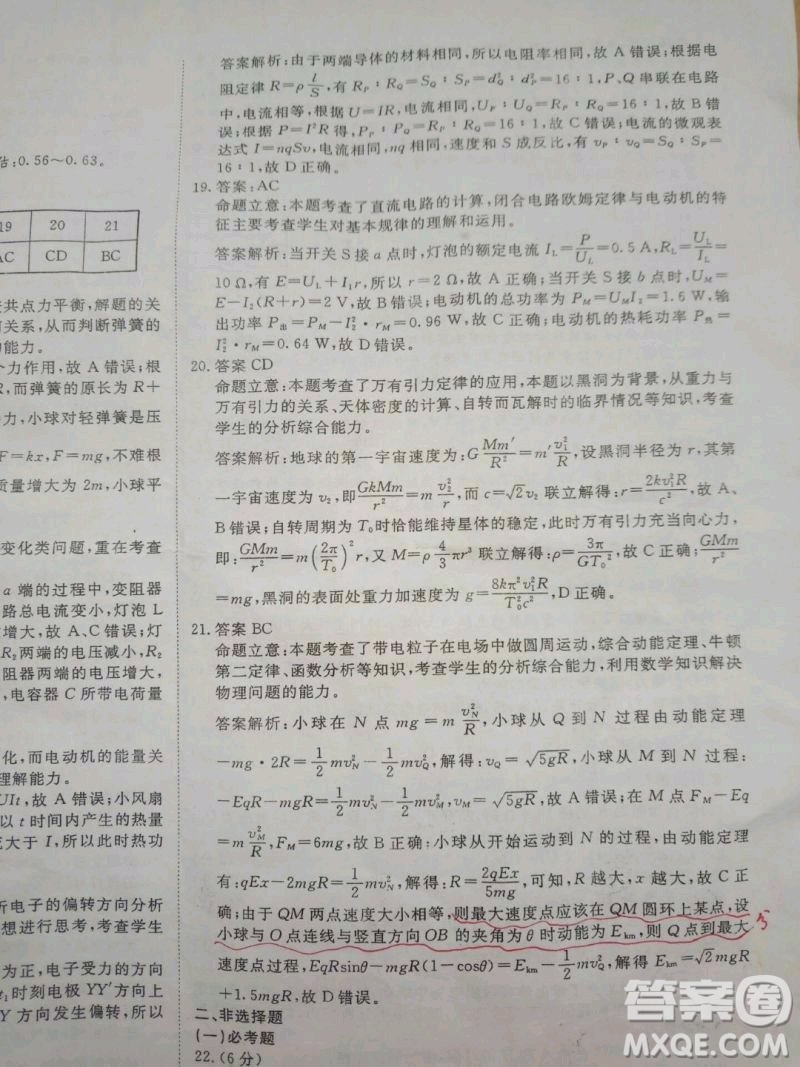 估:0.56～0.63。
19 20 21
AC CD BC
共点力平衡，解题的关
关系，从而判断弹簧的
的能力。
力作用，故 A 错误；根
而弹簧的原长为 R＋
，小球对轻弹簧是压
F＝kx,F＝mg,不难根
质量增大为 2m,小球平
变化类问题，重在考查
a 端的过程中，变阻器
路总电流变小，灯泡 L
增大，故 A、C 错误；灯
R₂两端的电压减小，R₂
阻器两端的电压增大，
，电容器 C 所带电荷量
化，而电动机的能量关
理解能力。
UIt，故 A 错误；小风扇
以 t 时间内产生的热量
大于 I，所以此时热功
析电子的偏转方向分析
想进行思考，考查学生
为正，电子受力的方向
t₁时刻电极 YY′方向上
Y 方向发生偏转，所以
答案解析：由于两端导体的材料相同，所以电阻率相同，故 A 错误；根据电
阻定律 R＝ρl/S,有 R_P∶R_Q＝S_Q∶S_P＝d_Q²∶d_P²＝16∶1,P、Q 串联在电路
中，电流相等，根据 U＝IR,电流相同，U_P∶U_Q＝R_P∶R_Q＝16∶1,故 B 错
误；根据 P＝I²R 得，P_P∶P_Q＝R_P∶R_Q＝16∶1,故 C 错误；电流的微观表
达式 I＝nqSv,电流相同，nq 相同，速度和 S 成反比，有 v_P∶v_Q＝S_Q∶S_P＝
16∶1,故 D 正确。
19. 答案：AC
命题立意：本题考查了直流电路的计算，闭合电路欧姆定律与电动机的特
征主要考查学生对基本规律的理解和运用。
答案解析：当开关 S 接 a 点时，灯泡的额定电流 I_L＝P/U_L＝0.5 A,R_L＝U_L/I_L＝
10 Ω，有 E＝U_L＋I₁r,所以 r＝2 Ω，故 A 正确；当开关 S 接 b 点时，U_M＝
E－I₂(R＋r)＝2 V,故 B 错误；电动机的总功率为 P_M＝U_MI₂＝1.6 W,输
出功率 P出＝P_M－I₂²·r_M＝0.96 W,故 C 正确；电动机的热耗功率 P热＝
I₂²·r_M＝0.64 W,故 D 错误。
20. 答案 CD
命题立意：本题考查了万有引力定律的应用，本题以黑洞为背景，从重力与
万有引力的关系、天体密度的计算、自转而瓦解时的临界情况等知识，考查
学生的分析综合能力。
答案解析：地球的第一宇宙速度为：G Mm′/R²＝m′v₁²/R,设黑洞半径为 r,其第
一宇宙速度为 v₂,即GkMm/r²＝m v₂²/r,而 c＝√2v₂ 联立解得：r＝2kv₁²R/c²,故 A、
B 错误；自转周期为 T₀时恰能维持星体的稳定，此时万有引力充当向心力，
即：GMm/r²＝m(2π/T₀)²r,又 M＝ρ 4/3 πr³ 联立解得：ρ＝3π/GT₀²,故 C 正确；GMm/r²
＝mg,黑洞的表面处重力加速度为 g＝8kπ²v₁²R/T₀²c²,故 D 正确。
21. 答案 BC
命题立意：本题考查了带电粒子在电场中做圆周运动，综合动能定理、牛顿
第二定律、函数分析等知识，考查学生的分析综合能力，利用数学知识解决
物理问题的能力。
答案解析：小球在 N 点 mg＝m v_N²/R,小球从 Q 到 N 过程由动能定理
－mg·2R＝1/2 mv_N²－1/2 mv_Q²,解得：v_Q＝√5gR,小球从 M 到 N 过程：
－EqR－mgR＝1/2 mv_N²－1/2 mv_M²,v_M＝√5gR,故 A 错误；在 M 点 F_M－Eq
＝m v_M²/R,F_M＝6mg,故 B 正确；小球从开始运动到 N 的过程，由动能定理
有：qEx－2mgR＝1/2 mv_N²,解得：R＝2qEx/5mg,可知，R 越大，x 越大，故 C 正
确；由于 QM 两点速度大小相等，则最大速度点应该在 QM 圆环上某点，设
小球与 O 点连线与竖直方向 OB 的夹角为 θ 时动能为 E_km,则 Q 点到最大
速度点过程，EqRsinθ－mgR(1－cosθ)＝E_km－1/2 mv_Q²,解得 E_km＝√2mgR
＋1.5mgR,故 D 错误。
二、非选择题
(一)必考题
22.(6 分)
答案圈
MXQE.COM